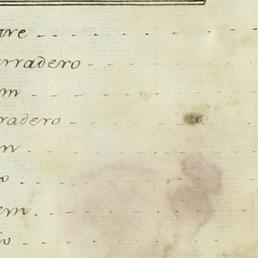 are
rradero
m
radero
m
o
em.
o